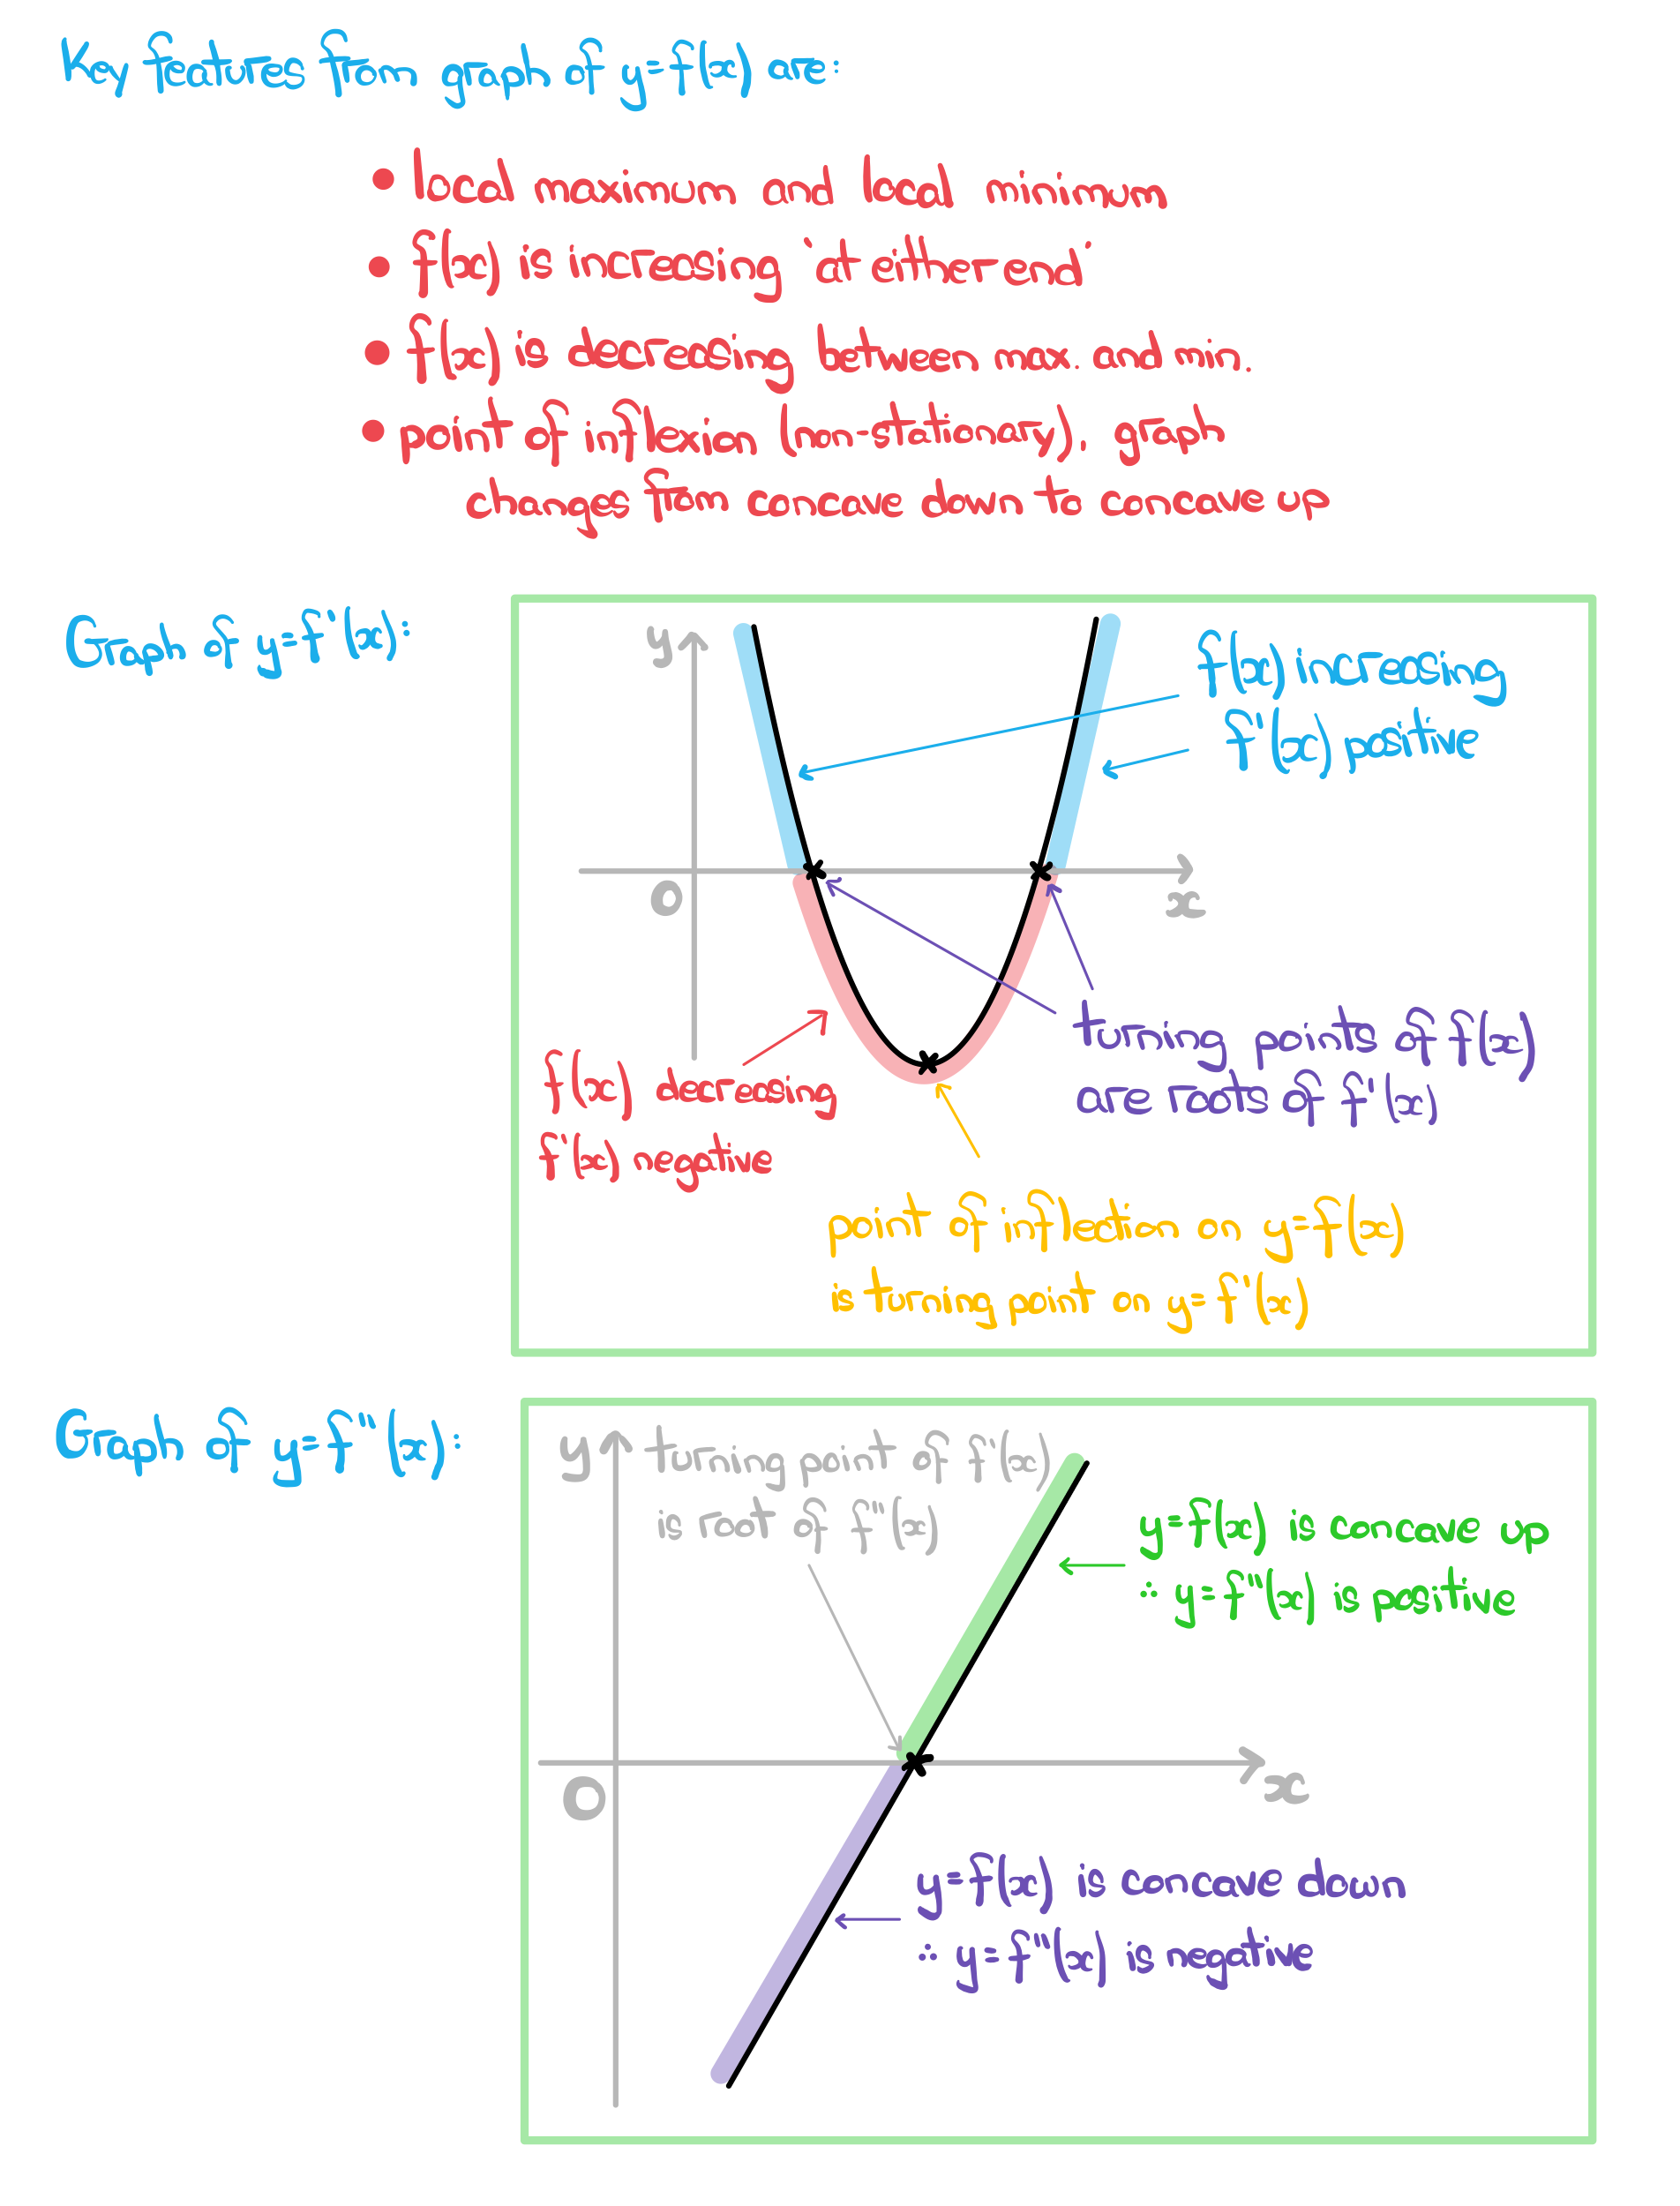 Key features from graph of y=f(x) are:
• local maximum and local minimum
• f(x) is increasing 'at either end'
• f(x) is decreasing between max. and min.
• point of inflexion (non-stationary), graph
changes from concave down to concave up
Graph of y=f'(x):
y
f(x) increasing
f'(x) positive
O
x
turning points of f(x)
are roots of f'(x)
f(x) decreasing
f'(x) negative
point of inflection on y=f(x)
is turning point on y=f'(x)
Graph of y=f''(x):
y
turning point of f'(x)
is root of f''(x)
y=f(x) is concave up
∴ y=f''(x) is positive
O
x
y=f(x) is concave down
∴ y=f''(x) is negative